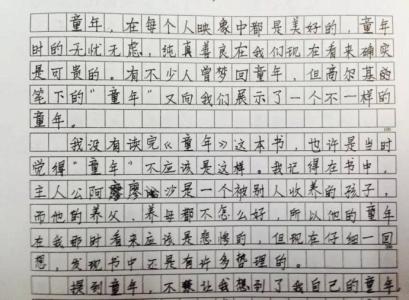 童年，在每个人映象中都是美好的，童年
时的无忧无虑，纯真善良在我们现在看来确实
是可贵的。有不少人曾梦回童年，但高尔基的
笔下的“童年”又向我们展示了一个不一样的
童年。
我没有读完《童年》这本书，也许是当时
觉得“童年”不应该是这样。我记得在书中，
主人公阿廖沙是一个被别人收养的孩子，
而他的养父、养母都不怎么好，所以他的童年
在我那时看来应该是悲惨的，但现在仔细一回
想，发现书中还是有许多哲理的。
提到童年，不禁让我想到了我自己的童年